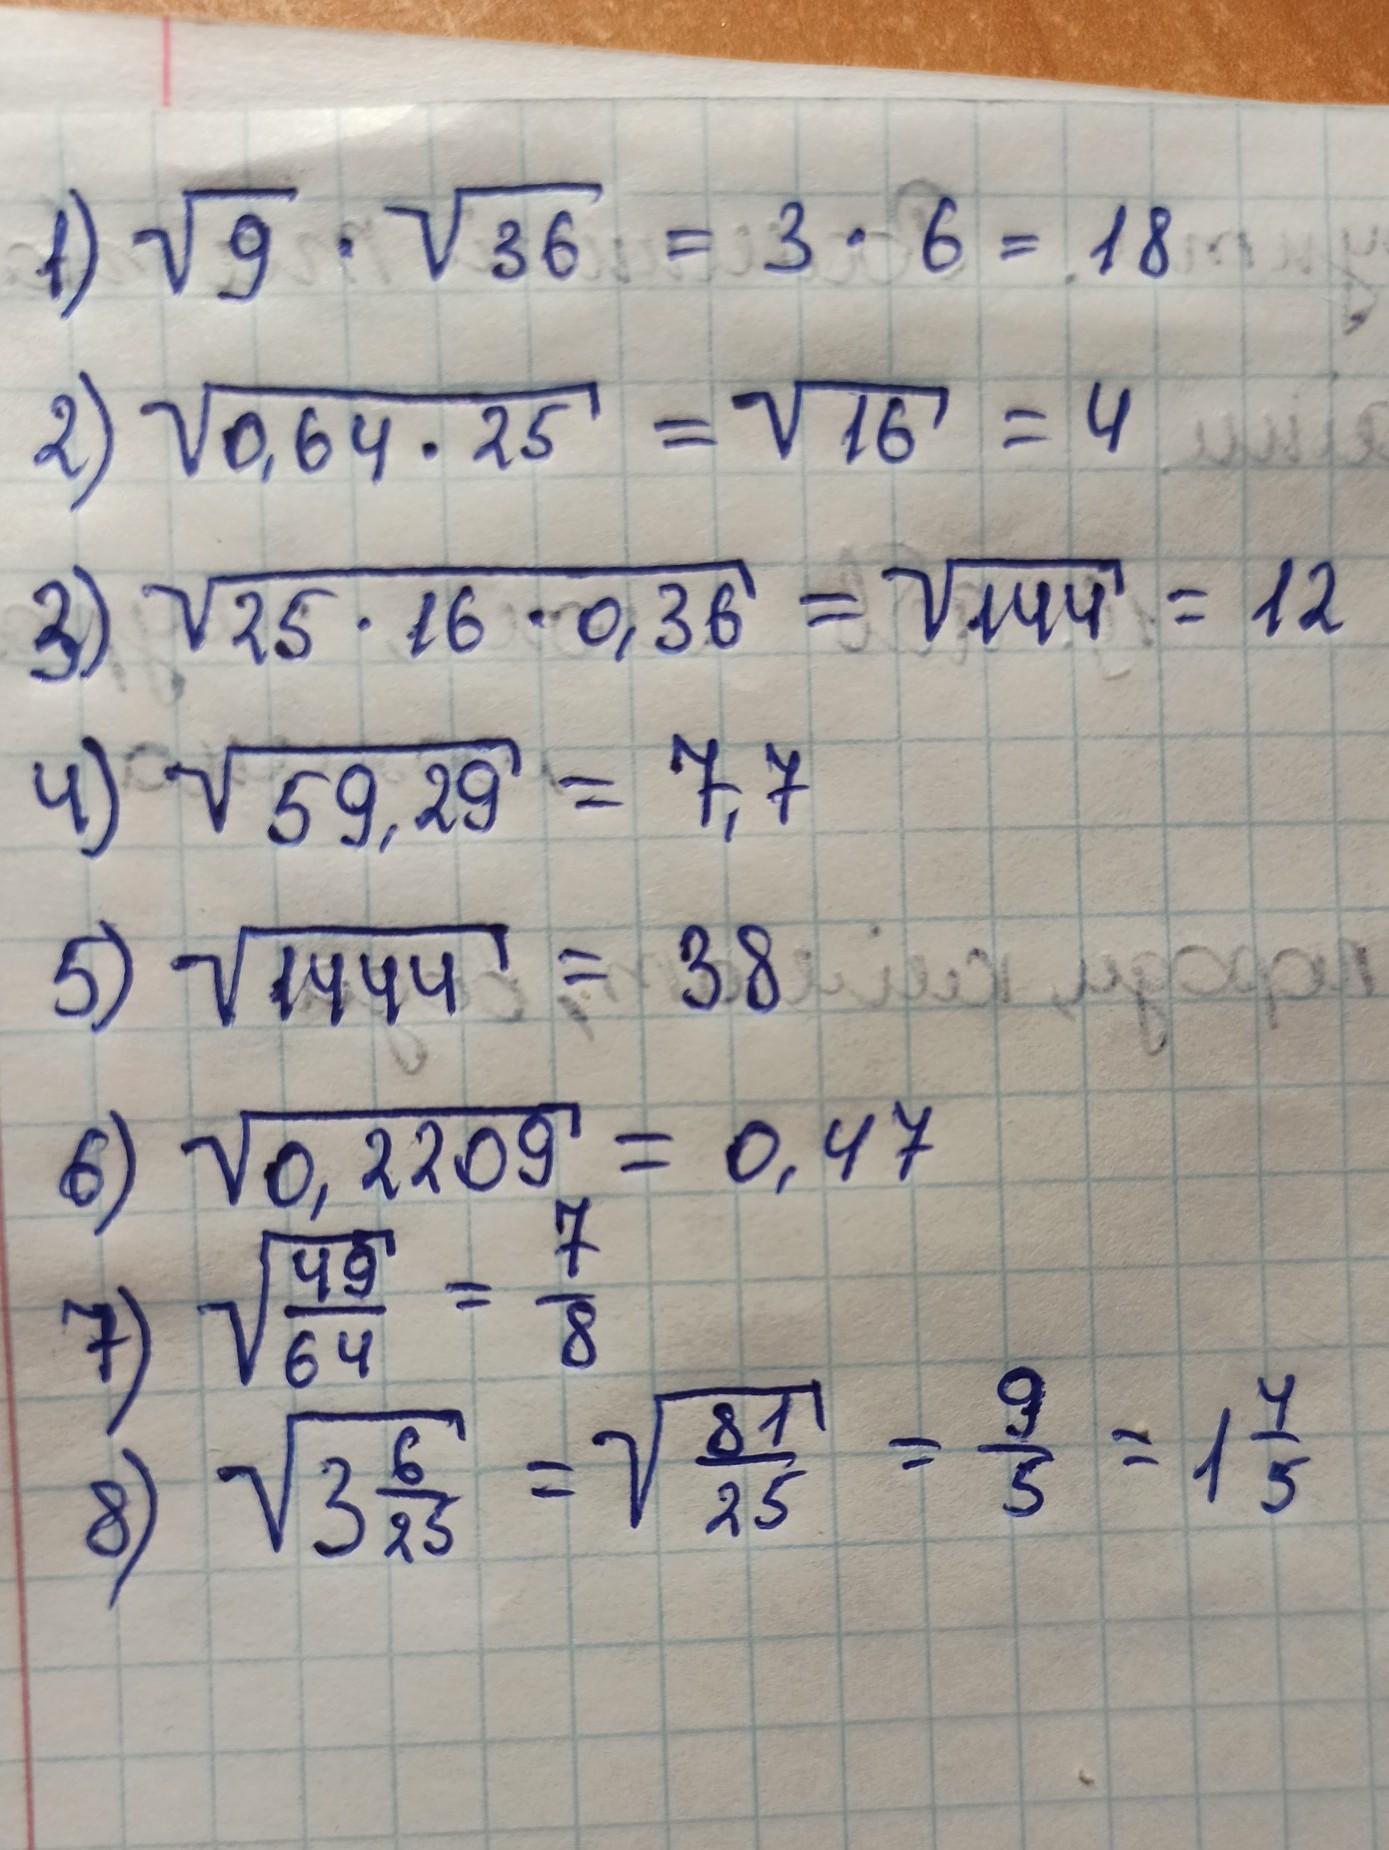 1) √9 · √36 = 3 · 6 = 18
2) √(0,64 · 25) = √16 = 4
3) √(25 · 16 · 0,36) = √144 = 12
4) √59,29 = 7,7
5) √1444 = 38
6) √0,2209 = 0,47
7) √(49/64) = 7/8
8) √(3 6/25) = √(81/25) = 9/5 = 1 4/5